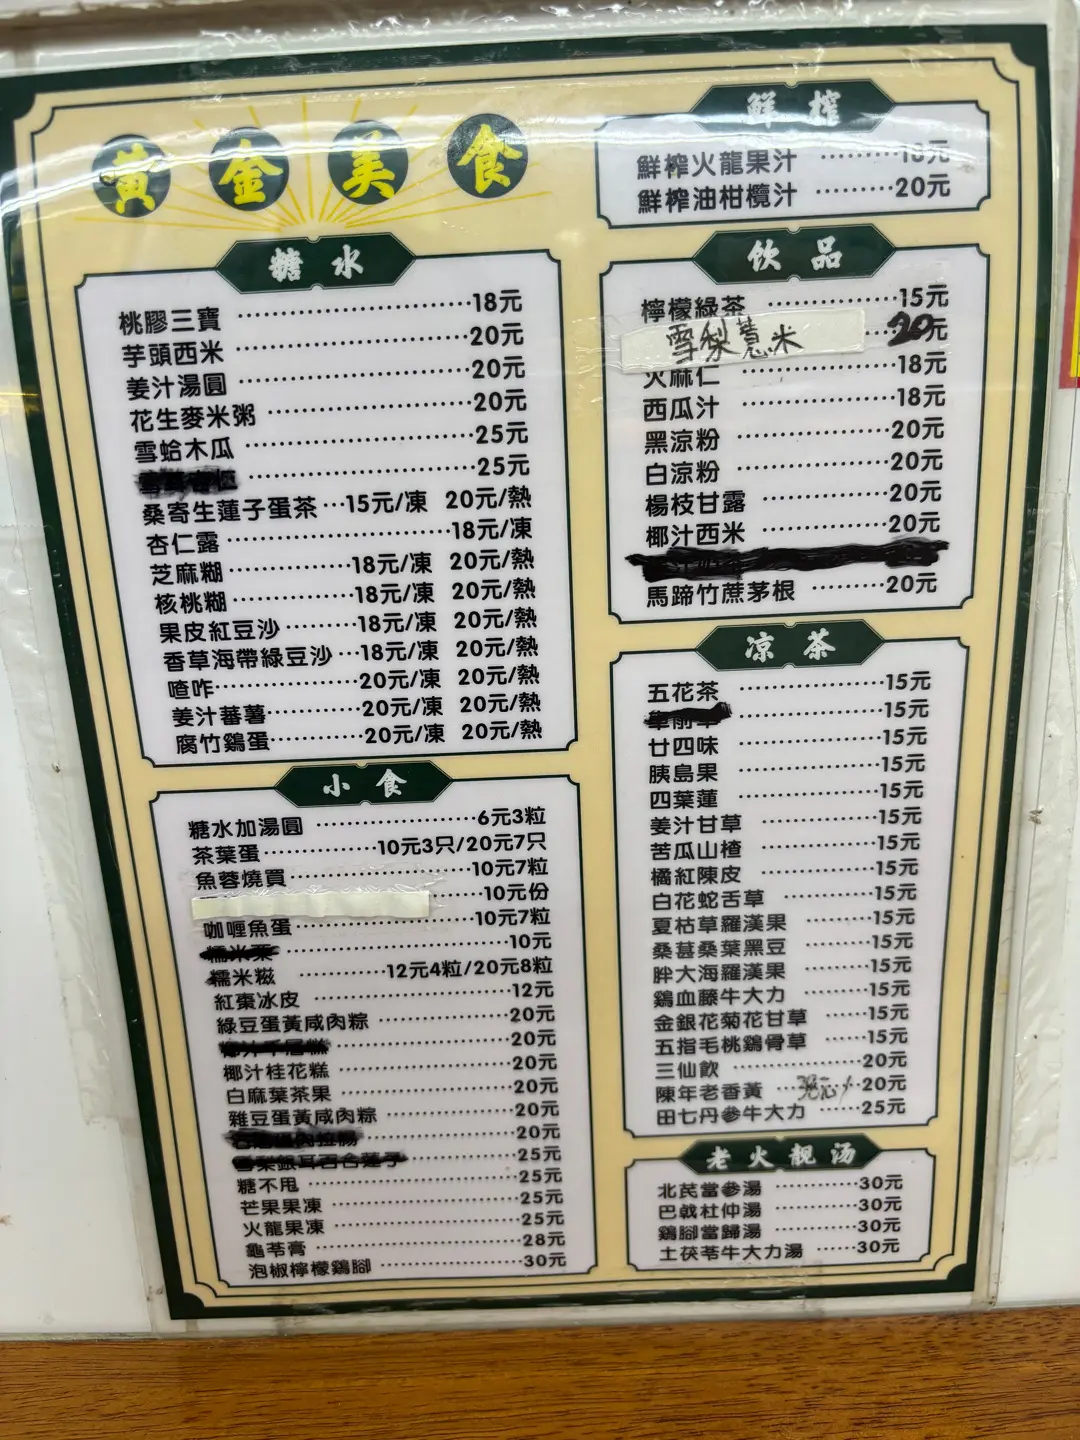 黃金美食
糖水
桃膠三寶 18元
芋頭西米 20元
姜汁湯圓 20元
花生麥米粥 20元
雪蛤木瓜 25元
25元
桑寄生蓮子蛋茶 15元/凍 20元/熱
杏仁露 18元/凍
芝麻糊 18元/凍 20元/熱
核桃糊 18元/凍 20元/熱
果皮紅豆沙 18元/凍 20元/熱
香草海帶綠豆沙 18元/凍 20元/熱
喳咋 20元/凍 20元/熱
姜汁蕃薯 20元/凍 20元/熱
腐竹鷄蛋 20元/凍 20元/熱
小食
糖水加湯圓 6元3粒
茶葉蛋 10元3只/20元7只
魚蓉燒買 10元7粒
10元份
咖喱魚蛋 10元7粒
10元
糯米糍 12元4粒/20元8粒
紅棗冰皮 12元
綠豆蛋黃咸肉粽 20元
20元
椰汁桂花糕 20元
白麻葉茶果 20元
雜豆蛋黃咸肉粽 20元
20元
雪梨銀耳百合蓮子 25元
糖不甩 25元
芒果果凍 25元
火龍果凍 25元
龜苓膏 28元
泡椒檸檬鷄腳 30元
鮮榨
鮮榨火龍果汁 18元
鮮榨油柑欖汁 20元
飲品
檸檬綠茶 15元
雪梨薏米 20元
火麻仁 18元
西瓜汁 18元
黑涼粉 20元
白涼粉 20元
楊枝甘露 20元
椰汁西米 20元
馬蹄竹蔗茅根 20元
凉茶
五花茶 15元
15元
廿四味 15元
胰島果 15元
四葉蓮 15元
姜汁甘草 15元
苦瓜山楂 15元
橘紅陳皮 15元
白花蛇舌草 15元
夏枯草羅漢果 15元
桑葚桑葉黑豆 15元
胖大海羅漢果 15元
鷄血藤牛大力 15元
金銀花菊花甘草 15元
五指毛桃鷄骨草 15元
三仙飲 20元
陳年老香黃 20元
田七丹參牛大力 25元
老火靚汤
北芪當參湯 30元
巴戟杜仲湯 30元
鷄腳當歸湯 30元
土茯苓牛大力湯 30元